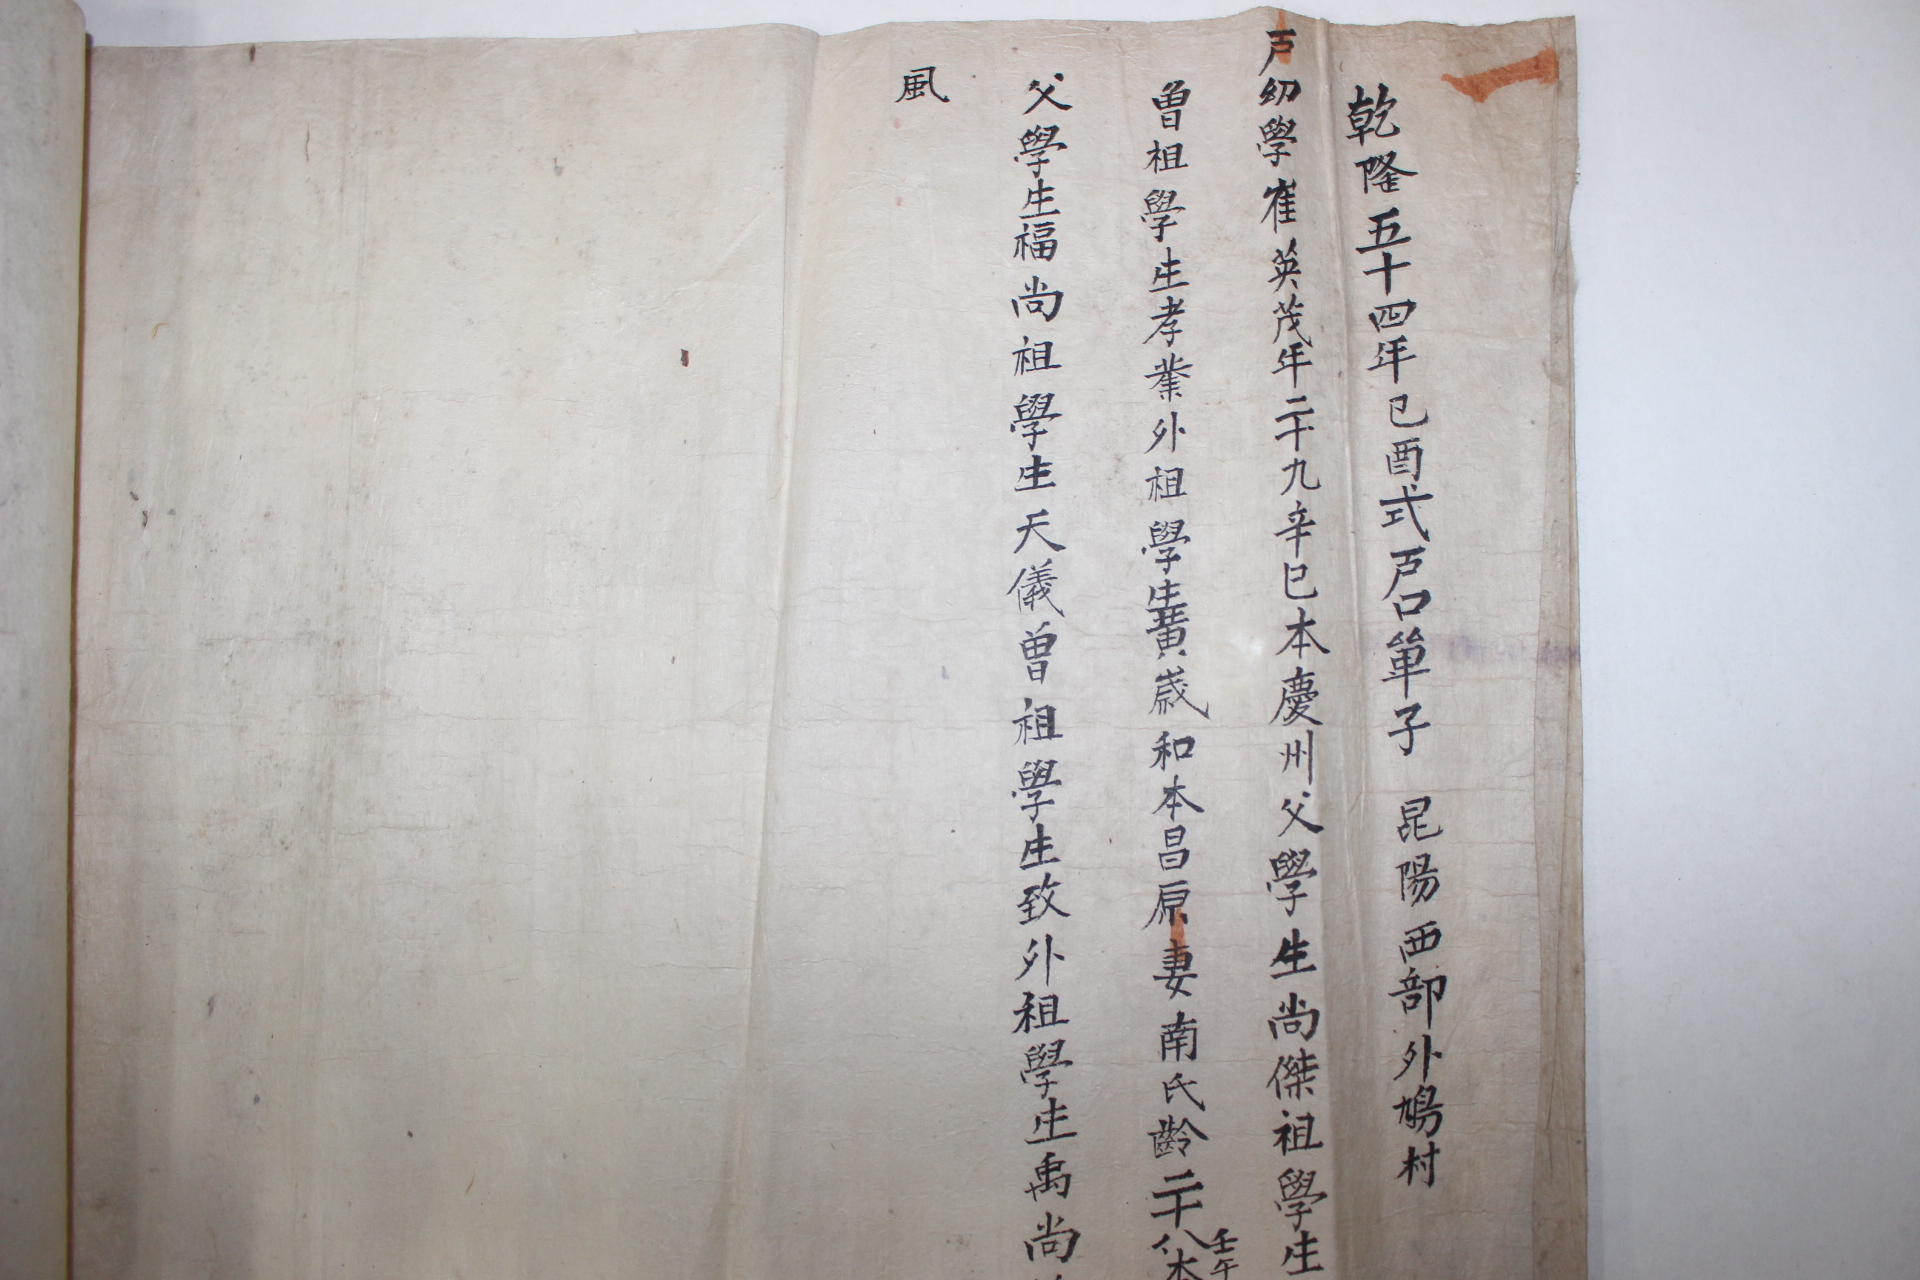 乾隆五十四年己酉式戶口單子 昆陽西部外鳩村
戶幼學崔英茂年二十九辛巳本慶州父學生尚傑祖學生
曾祖學生孝業外祖學生黃歲和本昌原妻南氏齡二十八壬午本
父學生福尚祖學生天儀曾祖學生致外祖學生禹尚
風